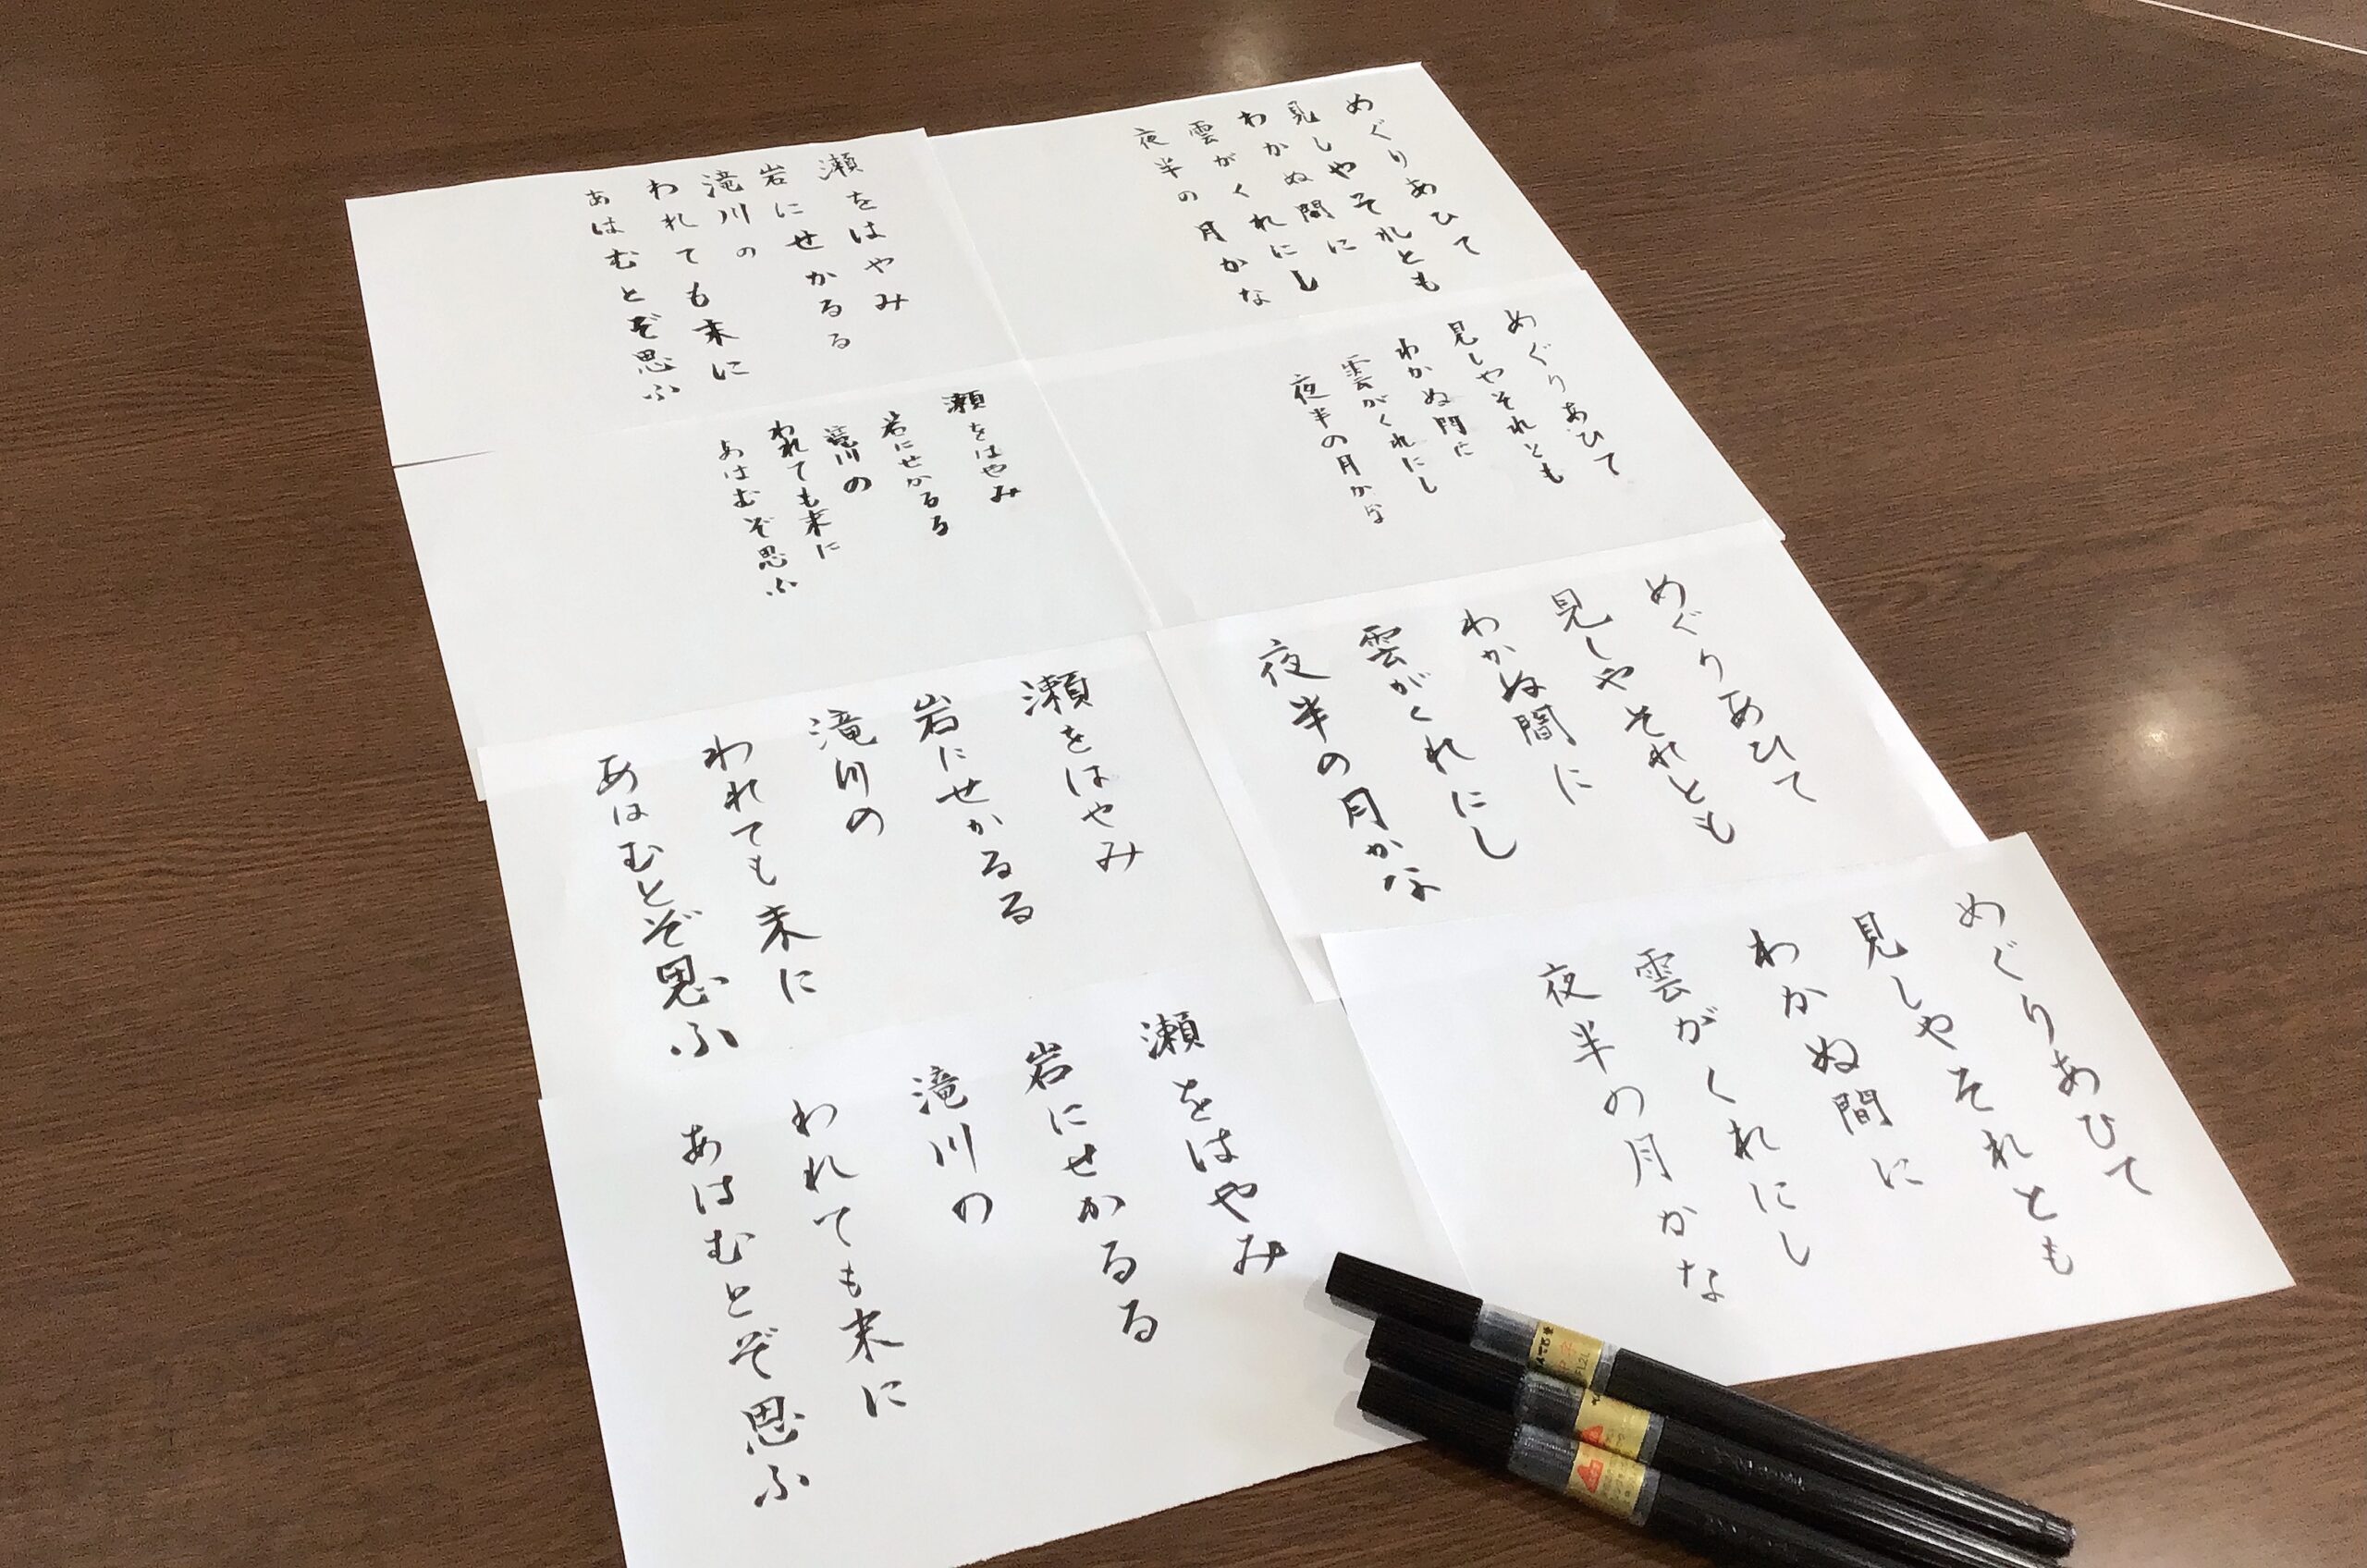 めぐりあひて
見しやそれとも
わかぬ間に
雲がくれにし
夜半の月かな
瀬をはやみ
岩にせかるる
滝川の
われても末に
あはむとぞ思ふ
めぐりあひて
見しやそれとも
わかぬ間に
雲がくれにし
夜半の月かな
瀬をはやみ
岩にせかるる
滝川の
われても末に
あはむぞ思ふ
めぐりあひて
見しやそれとも
わかぬ間に
雲がくれにし
夜半の月かな
瀬をはやみ
岩にせかるる
滝川の
われても末に
あはむとぞ思ふ
めぐりあひて
見しやそれとも
わかぬ間に
雲がくれにし
夜半の月かな
瀬をはやみ
岩にせかるる
滝川の
われても末に
あはむとぞ思ふ
ぺんてる筆